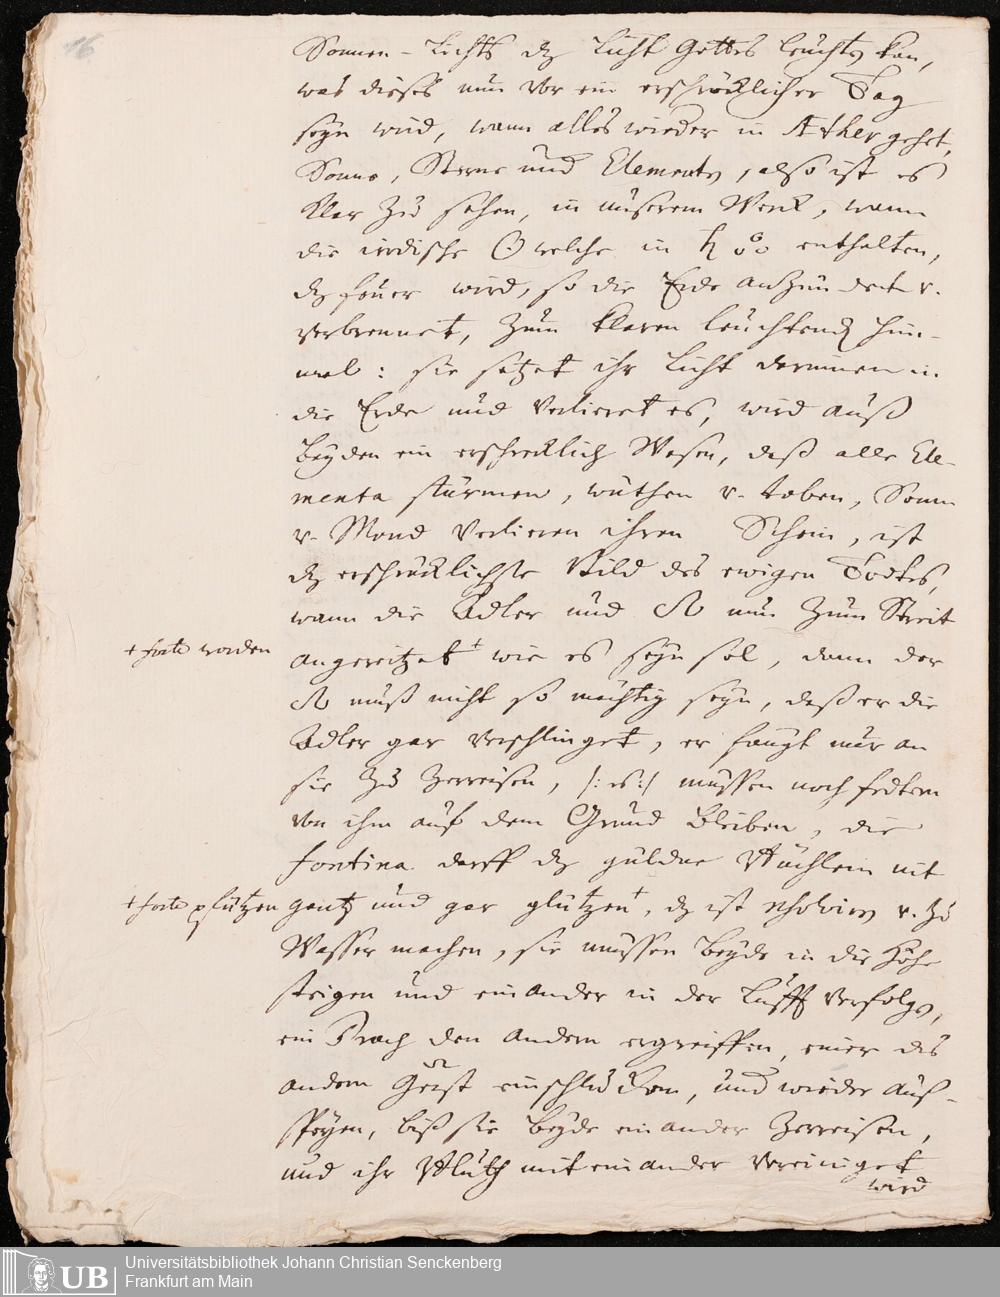 76
Sonnen-Lichts dz Licht Gottes leuchten kan,
was dieses nun vor ein erschröcklicher Tag
seyn wird, wann alles wieder in Æther gehet,
Sonne, Sterne und Elementen, also ist es
klar zu sehen, in unserem Werck, wann
die irrdische ☉ welche in ♄ enthalten,
dz feuer wird, so die Erde anzün-det v.
verbrennet, zum klaren leuchtend Him-
mel: sie setzet ihr Licht darinnen in
die Erde und verlieret es, wird auß
beyden ein erschrecklich Wesen, daß alle Ele-
menta stürmen, wüthen v. toben, Sonn
v. Mond verlieren ihren Schein, ist
dz erschröcklichste Bild des ewigen Todtes,
wann die Adler und ♌ nun zum Streit
+ forte worden
angereitzet+ wie es seyn sol, dann der
♌ muß nicht so mächtig seyn, daß er die
Adler gar verschlinget, er fangt nur an
sie zu zerreisen, /: es :/ müssen noch federn
von ihm auf dem Grund bleiben, die
fontina darff dz güldne Büchlein nit
+ forte pfützen
gantz und gar glützen+, dz ist solviren v. zu
Wasser machen, sie müssen beyde in die Höhe
steigen und einander in der Lufft verfolgen,
ein Drach den andern ergreiffen, einer des
andern Geist einschlucken, und wieder auß-
speyen, biß sie beyde einander zerreisen,
und ihr Bluth miteinander vereiniget
wird
UB
Universitätsbibliothek Johann Christian Senckenberg
Frankfurt am Main